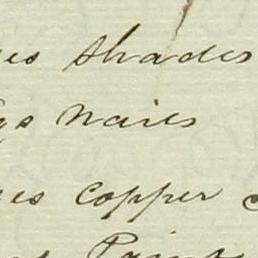 es shades
gs nails
es copper
Paints